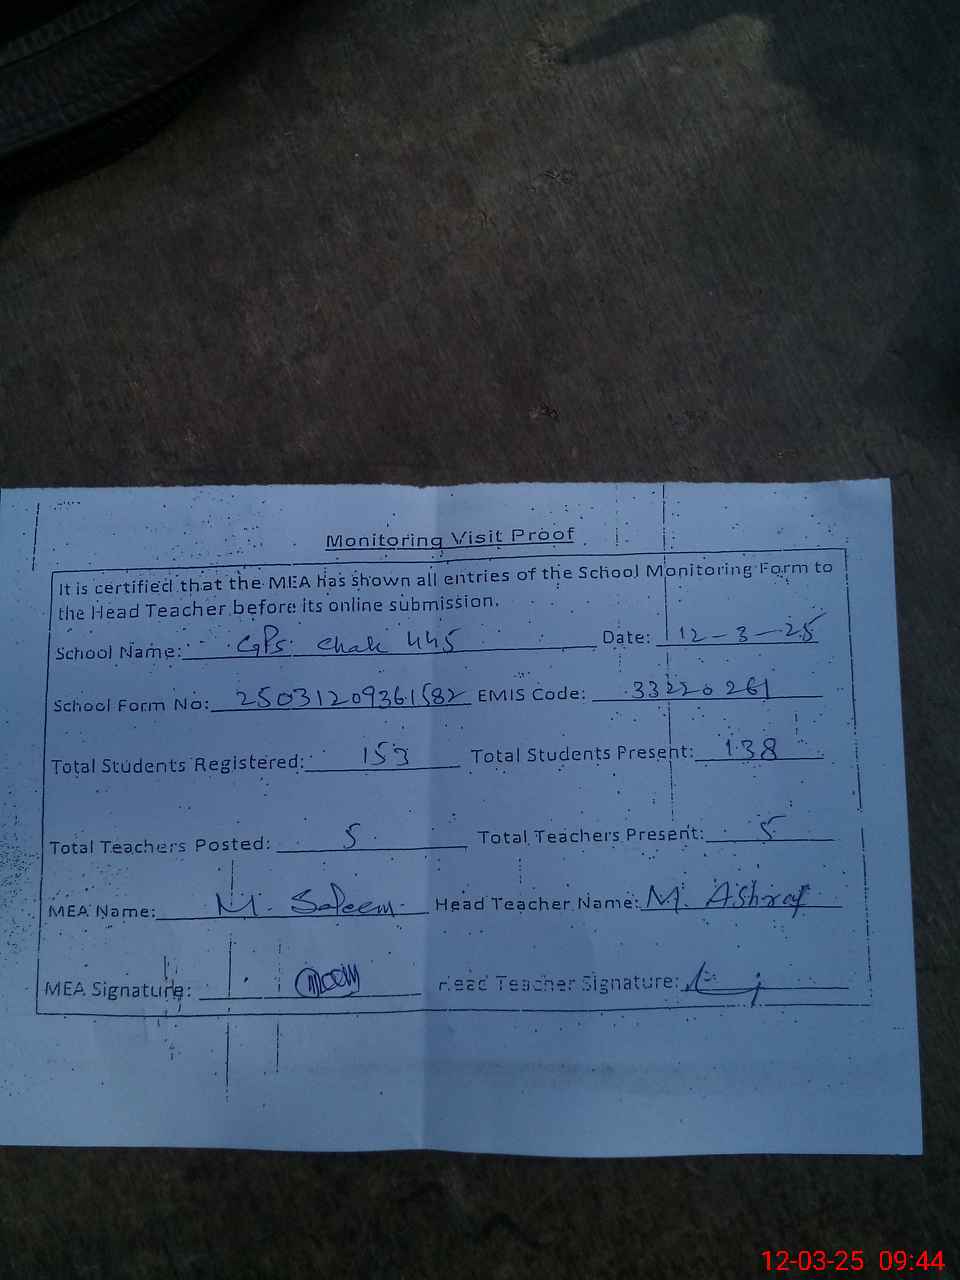 Monitoring Visit Proof
It is certified that the MEA has shown all entries of the School Monitoring Form to
the Head Teacher before its online submission.
School Name: GPS Chak 445 Date: 12-3-25
School Form No: 25031209361582 EMIS Code: 33220261
Total Students Registered: 153 Total Students Present: 138
Total Teachers Posted: 5 Total Teachers Present: 5
MEA Name: M. Saleem Head Teacher Name: M. Ashraf
MEA Signature: Head Teacher Signature:
12-03-25 09:44